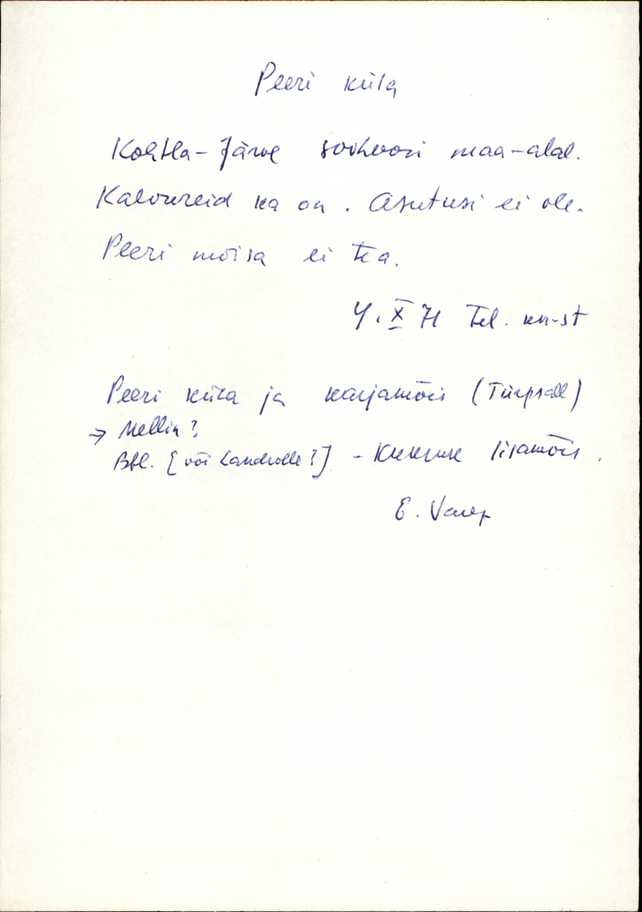 Peeri küla
Kohtla-Järve sovhoosi maa-alal.
Kalureid ka on. Asutusi ei ole.
Peeri mõisa ei tea.
4. X 71 Tel. kn-st
Peeri küla ja karjamõis (Türpsall)
→ Mellin?
Bfl. [või Landrolle?] - Kukruse lisamõis.
E. Varep